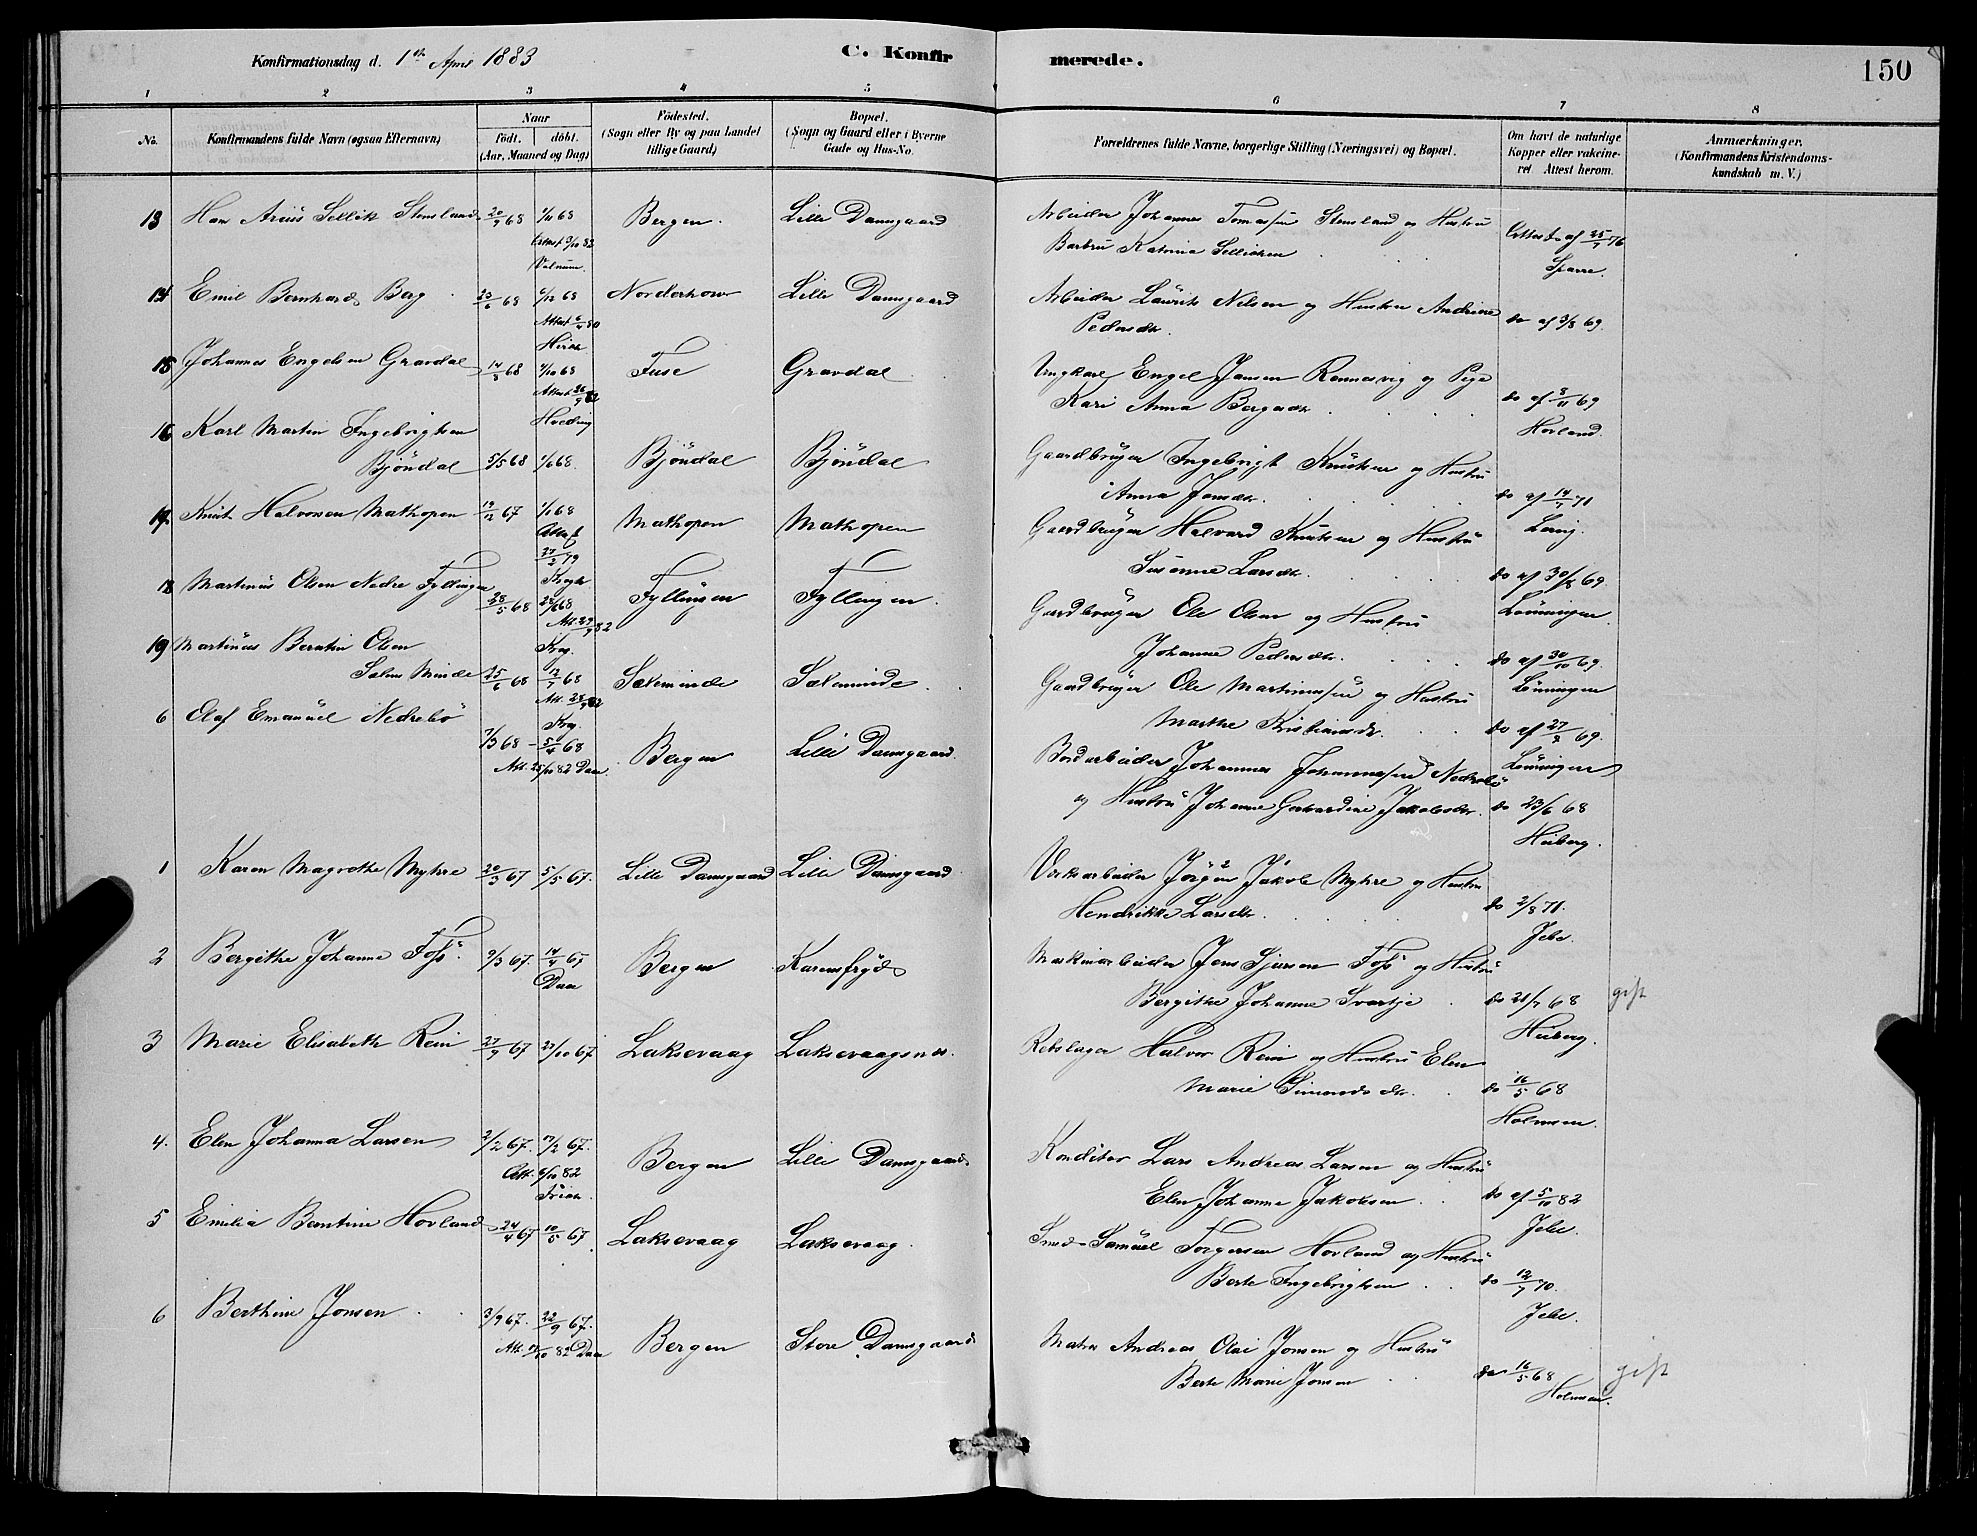 Konfirmationsdag d. 1ste April 1883
C. Konfirmerede.
150
1 2 3 4 5 6 7 8
No.
Konfirmandens fulde Navn (ogsaa Efternavn)
Naar
födt. döbt.
(Aar, Maaned og Dag)
Födested.
(Sogn eller By og paa Landet
tillige Gaard)
Bopæl.
(Sogn og Gaard eller i Byerne
Gade og Hus-No.
Forældrenes fulde Navne, borgerlige Stilling (Næringsvei) og Bopæl.
Om havt de naturlige
Kopper eller vakcine-
ret Attest herom.
Anmærkninger.
(Konfirmandens Kristendoms-
kundskab m. V.)
13 Hans Stensland 20/9 68 Bergen. Lille Damsgaard
Arbeider Johannes Tomassen Stensland og Hustru
Barbru Katrina Sellisken
Attest af 25/7 76
Sparre.
14 Emil Bernhard Berg 23/6 68 6/12 68 Norderhov Lille Damsgaard
Attest 6/4 80
Arbeider Laurits Nilsen og Hustru Andrine
Pedersdtr.
do af 3/8 69.
15 Johannes Engelsen Gravdal 14/8 68 Fuse Gravdal
Attest 26/9 82
Ungkarl Engel Jansen Rennesvig og Pige
Kari Anna Bergesdtr.
do af 8/11 69
Hovland.
16 Karl Martin Ingebrigtsen
Bjöndal 5/5 68 1/6 68. Bjöndal Bjöndal
Gaardbruger Ingebrigt Knutsen og Hustru
Anna Jonsdtr.
do af 14/7 71
17. Knut Halvorsen Mathopen 19/12 67 1/1 68 Mathopen Mathopen
Attest
27/2 79
Gaardbruger Halvard Knutsen og Hustru
Susanne Larsdtr.
do af 30/8 69.
Lönningen
18 Martinus Olsen Nedre Fyllingen 28/5 68 28/6 68 Fyllingen Fyllingen.
Att. 29/9 82
Gaardbruger Ole Olsen og Hustru
Johanne Pedersdtr.
do af 30/10 69.
Lönningen
19 Martinus Berntin Olsen
Sælen Minde 25/6 68 12/7 68 Sæleminde Sæleminde
Att. 28/9 82
Gaardbruger Ole Martinussen og Hustru
Marthe Kristiansdtr.
do af 27/8 69.
Lönningen
6 Olaf Emanuel Nedrebö
7/3 68 - 5/4 68 Bergen Lille Damsgaard.
Att. 25/10 82 Daae.
Bordarbeider Johannes Johannessen Nedrebö
og Hustru Johanne Gerhardine Jakobsdtr.
do 23/6 68
Heiberg.
1 Karen Magrethe Myhre 20/3 67 5/5 67. Lille Damsgaard Lille Damsgaard
Verksarbeider Jörgen Jakob Myhre og Hustru
Hendrikke Larsdtr.
do 2/8 71.
Jebe.
2 Bergithe Johanne Foss. 9/3 67. 14/4 67 Bergen Karensfryd
Daae
Maskinarbeider Jens Sjursen Foss og Hustru
Bergithe Johanne Svartje
do 21/7 68
Heiberg.
gift
3 Marie Elisabeth Rein 27/9 67 27/10 67 Laksevaag Laksevaagsnes.
Rebslager Halvor Rein og Hustru Elen
Marie Simonsdtr.
do 16/5 68
Holmsen.
4. Elen Johanna Larsen 2/2 67. 17/2 67. Bergen Lille Damsgaard
Att. 6/10 82
Konditor Lars Andreas Larsen og Hustru
Elen Johanne Jakobsen
do af 5/10 82
Jebe.
5 Emilia Bentine Hovland 24/4 67 10/5 67 Laksevaag Laksevaag.
Smed Samuel Torgersen Hovland og Hustru
Berte Ingebrigtsen
do 12/7 70.
Jebe.
6 Berthine Jonsen 3/9 67. 22/9 67. Bergen Store Damsgaard
Att. 82 Daae
Matros Andreas Olai Jonsen og Hustru
Berte Marie Jonsen
do 16/5 68
Holmsen.
gift